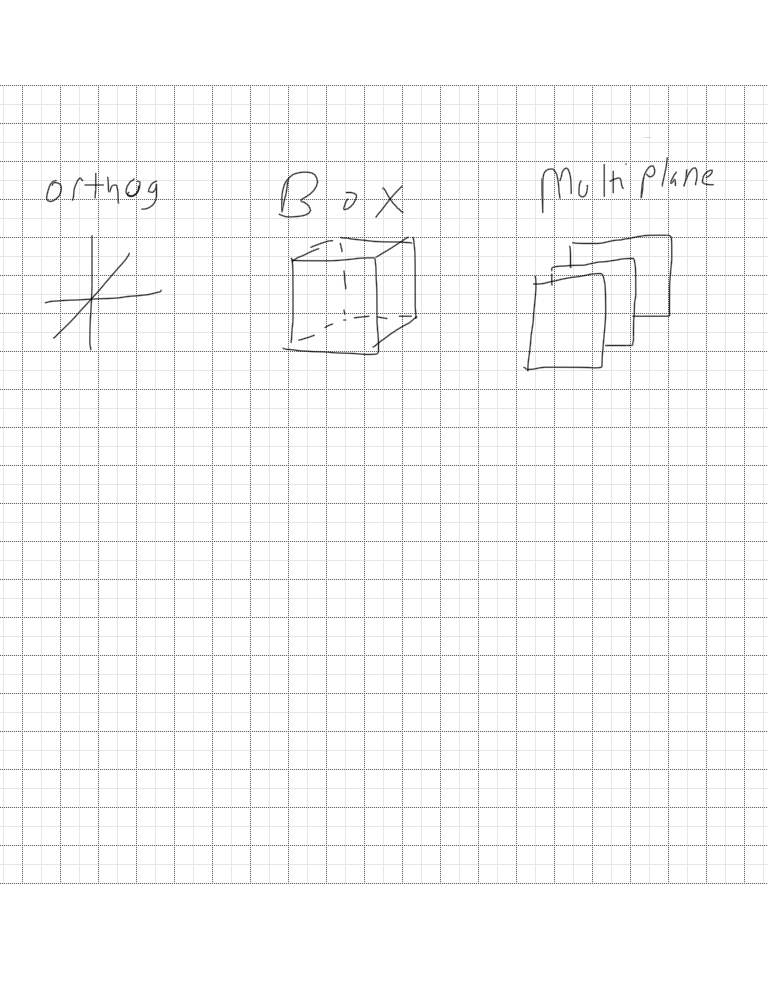 orthog Box Multiplane